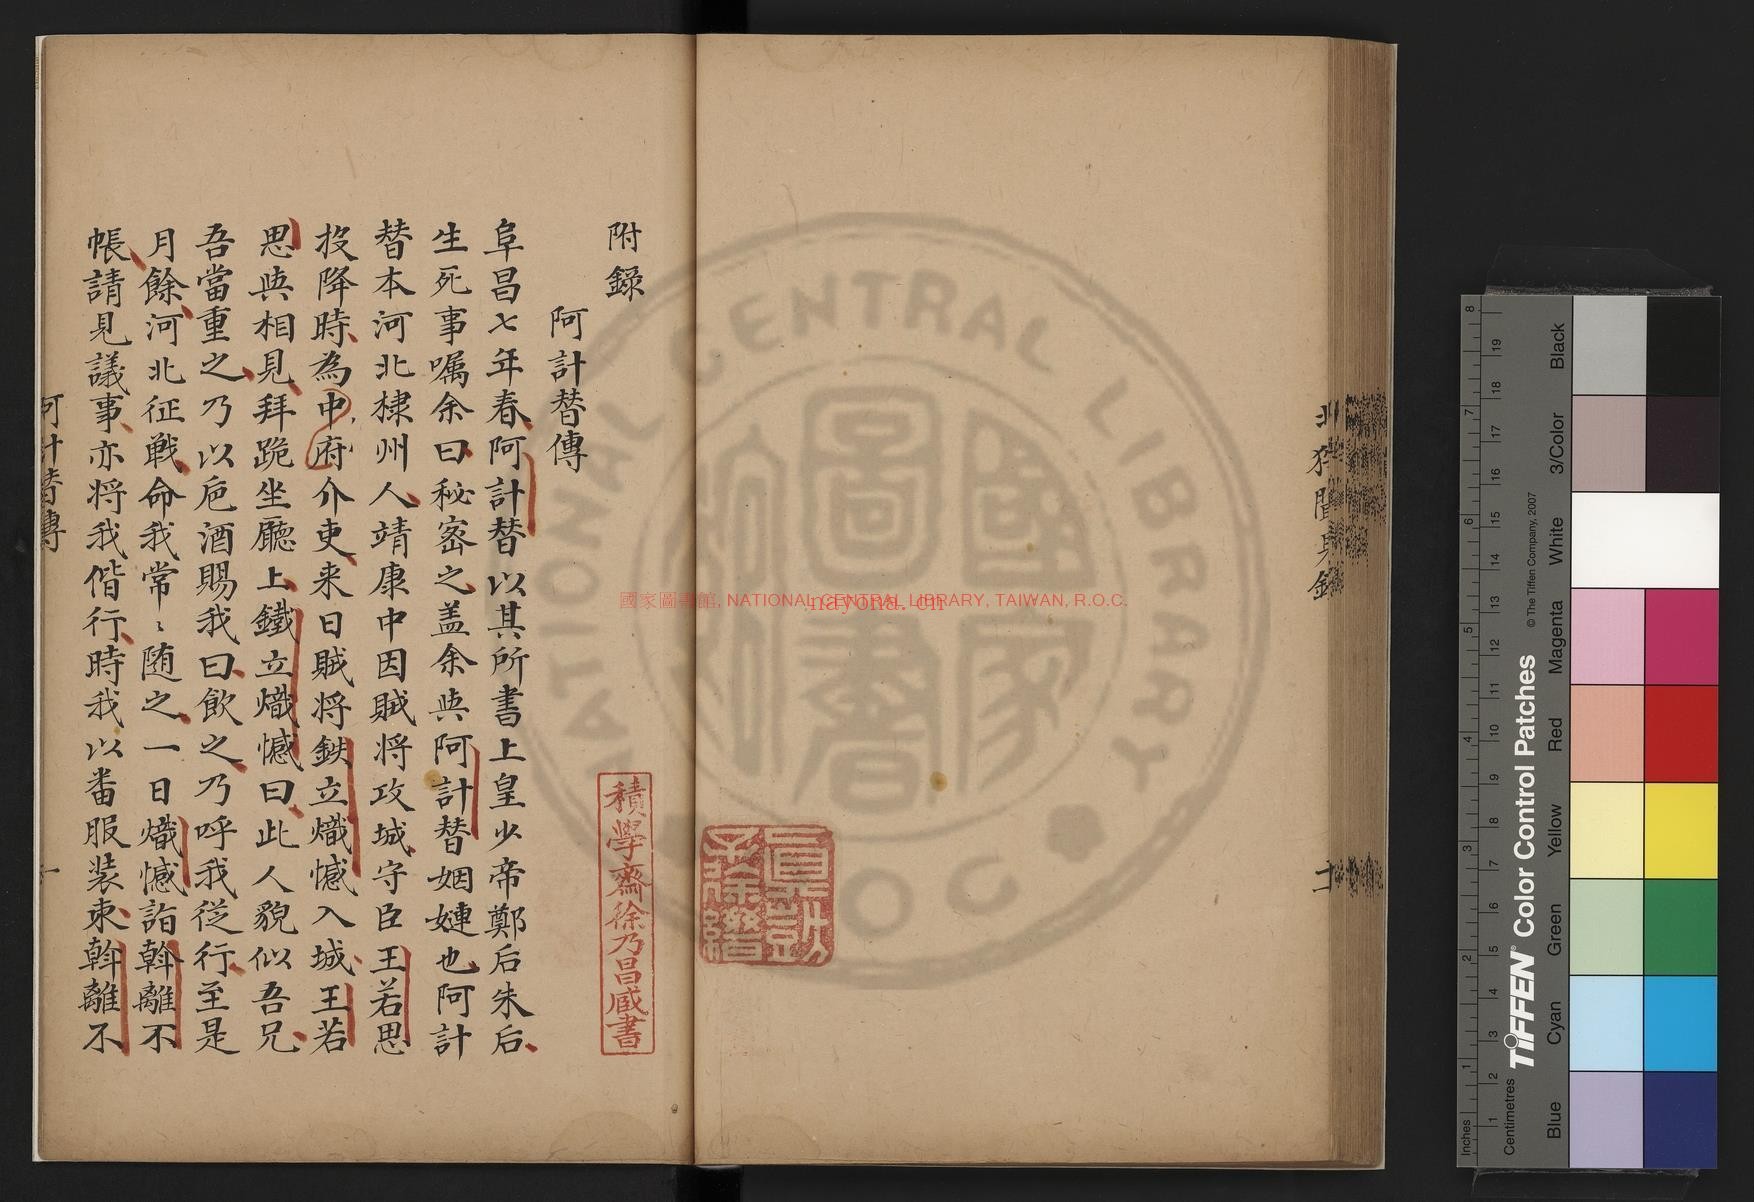 附錄
阿計替傳
阜昌七年春阿計替以其所書上皇少帝鄭后朱后
生死事囑余曰秘密之盖余與阿計替姻婕也阿計
替本河北棣州人靖康中因賊将攻城守臣王若思
投降時為中府介吏来日賊将鉄立熾憾入城王若
思與相見拜跪坐廳上鐵立熾憾曰此人貌似吾兄
吾當重之乃以巵酒賜我曰飲之乃呼我従行至是
月餘河北征戰命我常〻随之一日熾憾詣斡離不
帳請見議事亦将我偕行時我以番服装束斡離不
阿計替傳
一
積學齋徐乃昌臧書
國家圖書館, NATIONAL CENTRAL LIBRARY, TAIWAN, R.O.C.
nayona.cn
NATIONAL CENTRAL LIBRARY
國家圖書館
R.O.C.
TIFFEN® Color Control Patches
© The Tiffen Company, 2007
Centimetres
Inches
Blue
Cyan
Green
Yellow
Red
Magenta
White
3/Color
Black